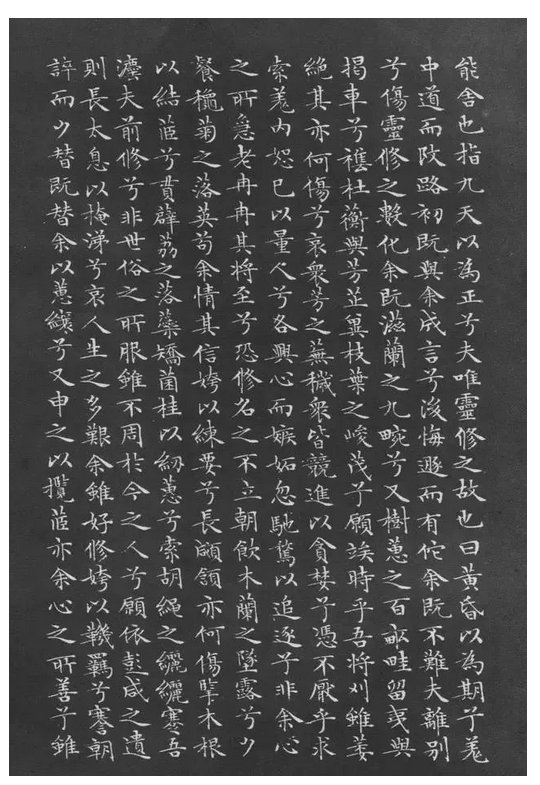 能舍也指九天以為正兮夫唯靈修之故也曰黃昏以為期兮羌
中道而改路初既與余成言兮後悔遯而有佗余既不難夫離別
兮傷靈修之數化余既滋蘭之九畹兮又樹蕙之百畝畦留夷與
揭車兮襍杜蘅與芳芷冀枝葉之峻茂兮願俟時乎吾將刈雖萎
絕其亦何傷兮哀衆芳之蕪穢衆皆競進以貪婪兮憑不猒乎求
索羌內恕己以量人兮各興心而嫉妬忽馳騖以追逐兮非余心
之所急老冉冉其將至兮恐修名之不立朝飲木蘭之墜露兮夕
餐穐菊之落英苟余情其信姱以練要兮長顑頷亦何傷擥木根
以結茝兮貫薜荔之落蘂矯菌桂以紉蕙兮索胡繩之纚纚謇吾
灋夫前修兮非世俗之所服雖不周於今之人兮願依彭咸之遺
則長太息以掩涕兮哀人生之多艱余雖好修姱以鞿羈兮謇朝
誶而夕替既替余以蕙纕兮又申之以攬茝亦余心之所善兮雖